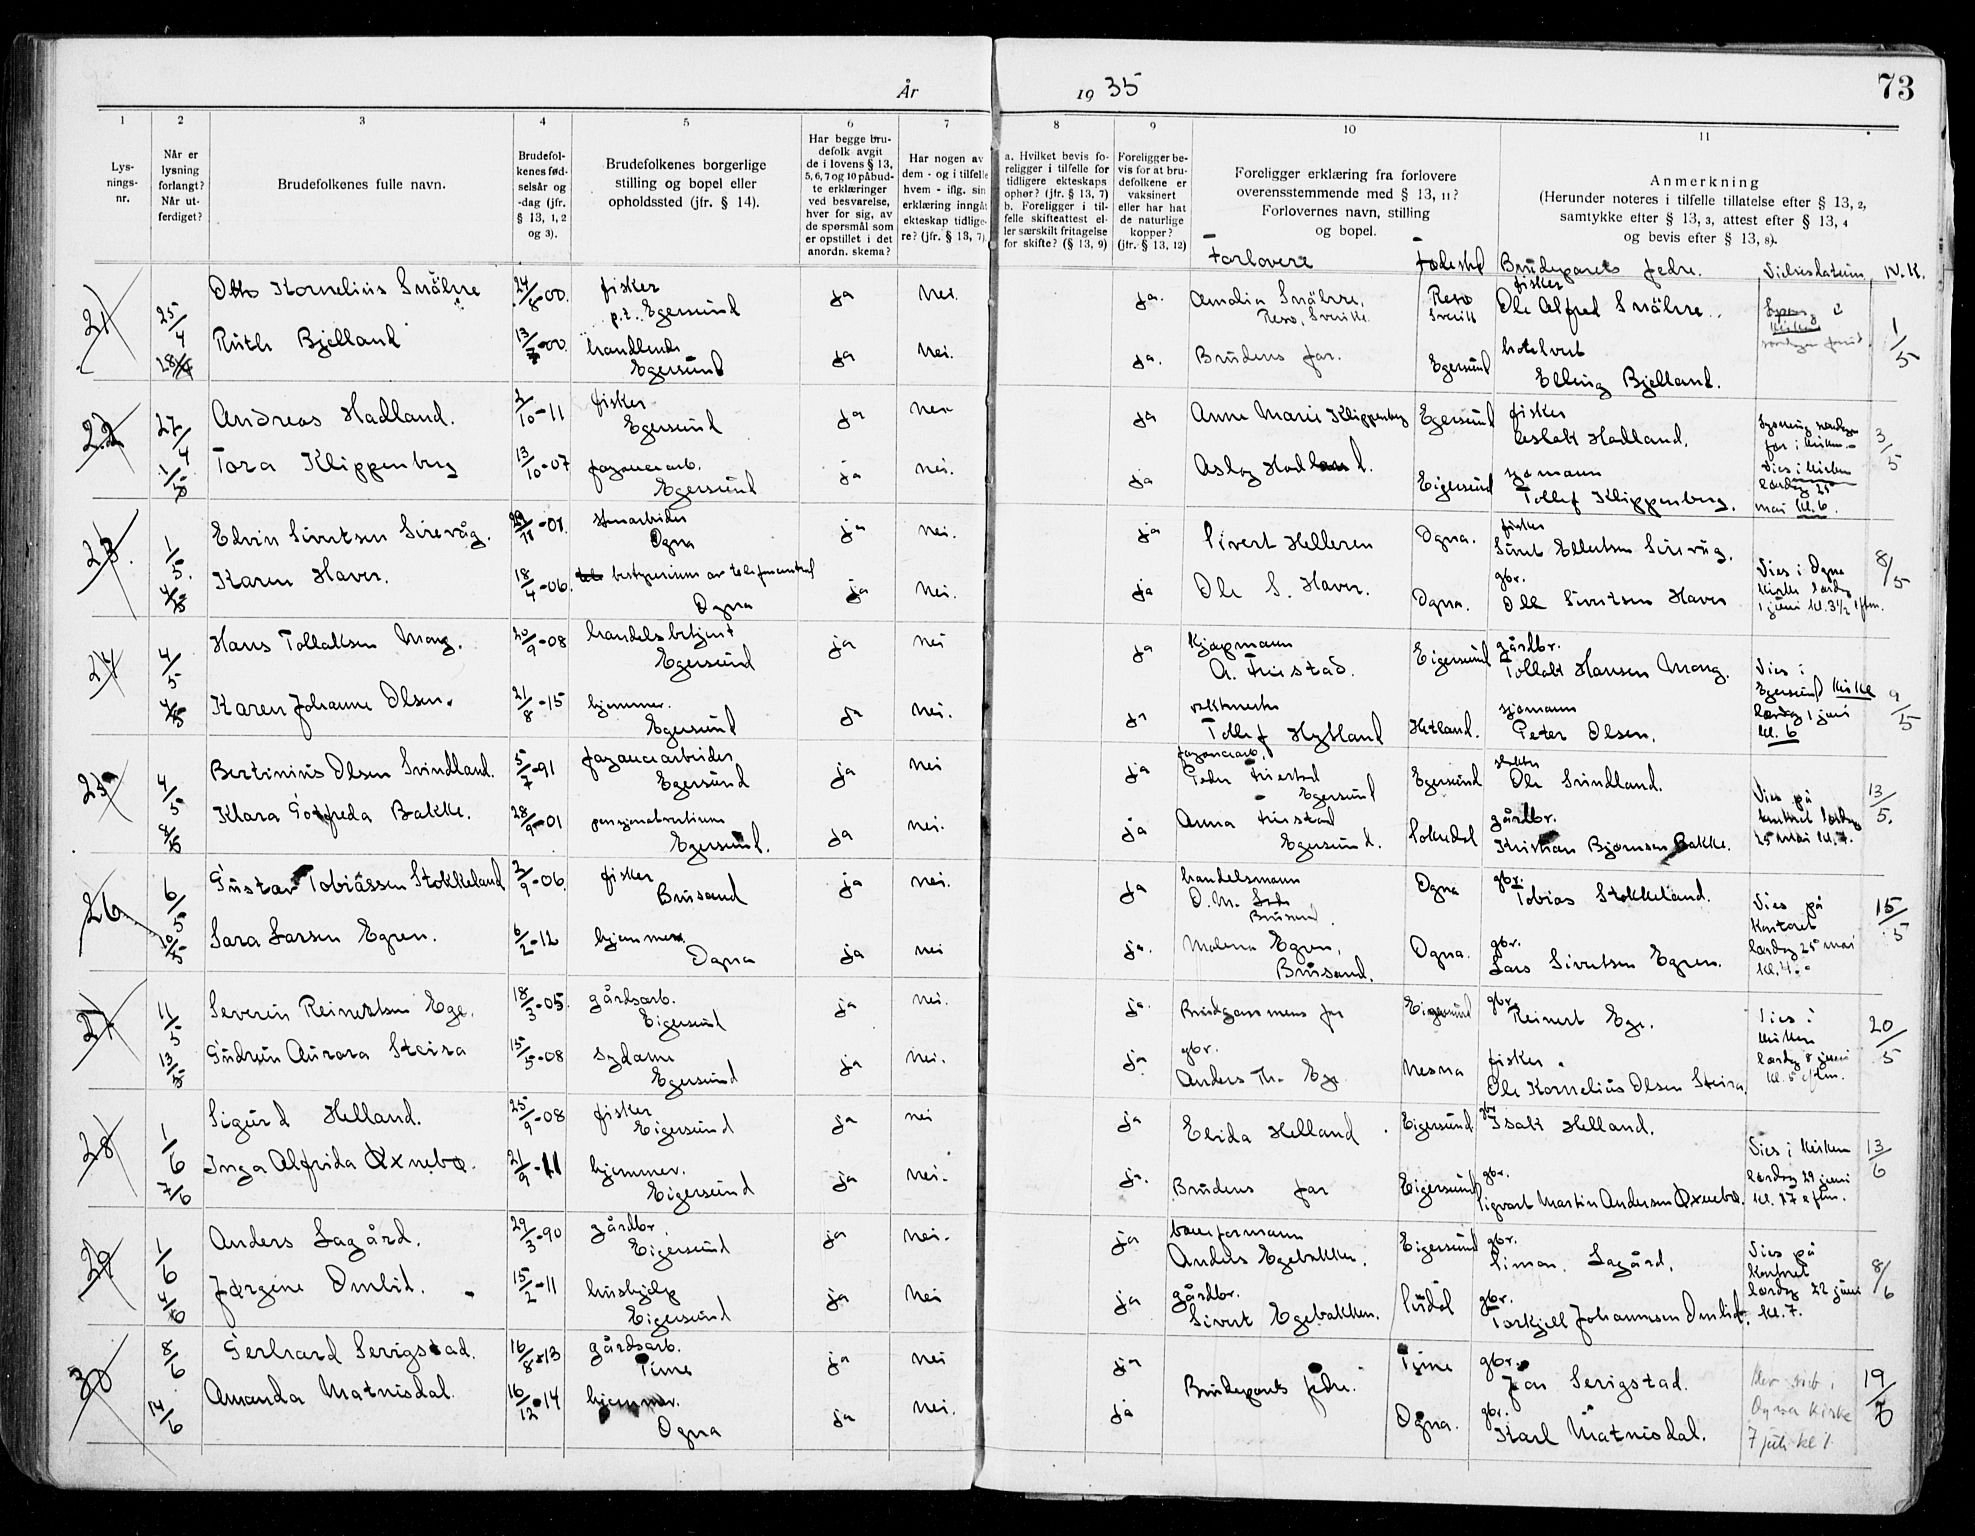 År 1935
73
1
2
3
4
5
6
7
8
9
10
11
Lys-
nings-
nr.
Når er
lysning
forlangt?
Når ut-
ferdiget?
Brudefolkenes fulle navn.
Brudefol-
kenes fød-
selsår og
-dag (jfr.
§ 13, 1, 2
og 3).
Brudefolkenes borgerlige
stilling og bopel eller
opholdssted (jfr. § 14).
Har begge bru-
defolk avgit
de i lovens § 13,
5, 6, 7 og 10 påbud-
te erklæringer
ved besvarelse,
hver for sig, av
de spørsmål som
er opstillet i det
anordn. skema?
Har nogen av
dem - og i tilfelle
hvem - iflg. sin
erklæring inngåt
ekteskap tidlige-
re? (jfr. § 13, 7)
a. Hvilket bevis fo-
religger i tilfelle for
tidligere ekteskaps
ophør? (jfr. § 13, 7)
b. Foreligger i til-
felle skifteattest el-
ler særskilt fritagelse
for skifte? (§ 13, 9)
Foreligger be-
vis for at bru-
defolkene er
vaksinert
eller har hat
de naturlige
kopper?
(jfr. § 13, 12)
Foreligger erklæring fra forlovere
overensstemmende med § 13, 11?
Forlovernes navn, stilling
og bopel.
Anmerkning
(Herunder noteres i tilfelle tillatelse efter § 13, 2,
samtykke efter § 13, 3, attest efter § 13, 4
og bevis efter § 13, 8).
Forlovere Fødested Brudeparets fedre. Vielsesdatum N.K.
21 25/4 Otto Kornelius Snålsre 24/8-00. fisker p.t. Egersund ja nei. ja. Amalia Snålsre, Resö, Sverike Resö Sverik fisker Ole Alfred Snålsre. Lysning i kirken 1/5
28/4 Ruth Bjelland 13/7-00. handlende Egersund ja nei. ja. Brudens far. Egersund hotelvert Elling Bjelland.
22 27/4 Andreas Hadland. 2/10-11 fisker Egersund ja nei ja Anne Marie Klippenberg Egersund fisker Aslak Hadland. Lysning i kirken. 3/5
1/5 Tora Klippenberg 13/10-07 fayancearb. Egersund ja nei. ja Aslog Hadland. Eigersund sjømann Tollef Klippenberg. Vies i kirken lørdag 25 mai kl. 6.
23. 1/5. Edvin Sivertsen Sirevåg. 29/11-01. stenarbeider Ogna ja nei. ja Sivert Helleren Ogna. fisker Sivert Ellertsen Sirevåg. 8/5
4/5 Karen Haver. 18/4-06. bestyrerinne av telefoncentral Ogna ja nei. ja Ole S. Haver. Ogna. gbr. Ole Sivertsen Haver Vies i Ogna kirke lørdag 1 juni kl. 3½ eftm.
24 4/5 Hans Tollaksen Mong. 20/9-08 handelsbetjent Egersund ja nei ja Kjøpmann A. Friestad. Eigersund gårdbr. Tollak Hansen Mong. 9/5
4/5 Karen Johanne Olsen. 21/8-15 hjemmev. Egersund ja nei. ja vektmester Tollef Hytland Hetland. sjømann Peter Olsen. Vies i Egersund kirke lørdag 1 juni kl. 6
25 4/5 Bertinius Olsen Svindland. 5/7-91 fayancearbeider Egersund ja nei ja fayancearb. Peder Friestad Egersund Egersund Ole Svindland. 13/5.
8/5 Klara Gotfreda Bakke. 28/9-01 pensjonatvertinne Egersund. ja nei. ja Anna Friestad Egersund. Sokndal gårdbr. Kristian Bjørnsen Bakke. Vies på kontoret lørdag 25 mai kl. 7.
26 6/5 Gustav Tobiassen Stokkeland 2/9-06. fisker Brusand ja nei. ja handelsmann O. M. Brusand. Ogna gbr. Tobias Stokkeland. 15/5
10/5 Sara Larsen Egren. 6/2-12 hjemmev. Ogna ja nei ja. Malena Egren, Brusand. Ogna. gbr. Lars Sivertsen Egren. Vies på kontoret lørdag 25 mai kl. 4.
27. 11/5 Severin Reinertsen Ege. 18/3-05. gårdsarb. Eigersund ja nei. ja. Brudgommens far Eigersund gbr. Reinert Ege. 20/5
13/5 Gudrun Aurora Steira 15/5-08 sydame Egersund ja nei. ja gbr. Anders Th. Ege. Nesna fisker. Ole Kornelius Olsen Steira. Vies i kirken lørdag 8 juni kl. 5 eftm.
28 1/6 Sigurd Helland. 25/9-08 fisker Eigersund ja nei ja Elida Helland. Eigersund gbr Isak Helland. 13/6
7/6 Inga Alfrida Øxnebø. 21/9-11 hjemmev. Eigersund ja nei. ja. Brudens far Eigersund gbr. Sigvart Martin Andersen Øxnebø. Vies i kirken lørdag 29 juni kl. eftm.
29 1/6 Anders Lagård. 29/3-90 gårdbr Eigersund ja nei. ja baneformann Anders Egebakken. Eigersund gbr. Simon Lagård. 8/6
4/6 Jørgine Omlid. 15/2-11 hushjelp Eigersund ja nei ja gårdbr. Sivert Egebakken. Sirdal gbr. Torkjell Johannesen Omlid. Vies på kontoret lørdag 22 juni kl. 7.
30 8/6 Gerhard Serigstad. 16/8-13 gårdsarb. Time ja nei ja Brudeparets fedre. Time gbr. Jon Serigstad. 19/7
14/6 Amanda Matnisdal. 16/12-14 hjemmev. Ogna ja nei. ja Ogna. gbr. Karl Matnisdal. Ogna Kirke 7 juli kl 1.